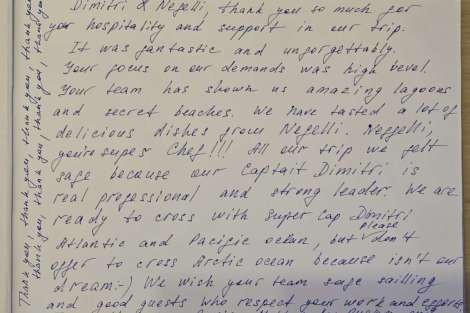 Dimitri & Nefelli, thank you so much for
your hospitality and support in our trip.
It was fantastic and unforgettably.
Your focus on our demands was high level.
Your team has shown us amazing lagoons
and secret beaches. We have tasted a lot of
delicious dishes from Nefelli. Neffelli,
you're super Chef!!! All our trip we felt
safe because our Captait Dimitri is
real professional and strong leader. We are
ready to cross with super Cap Dimitri
Atlantic and Pacific ocean, but please don't
offer to cross Arctic ocean because isn't our
dream:-) We wish your team safe sailling
and good guests who respect your work and efforts
Thank you, thank you, thank you, thank you, thank you
thank you, thank you, thank you, thank you